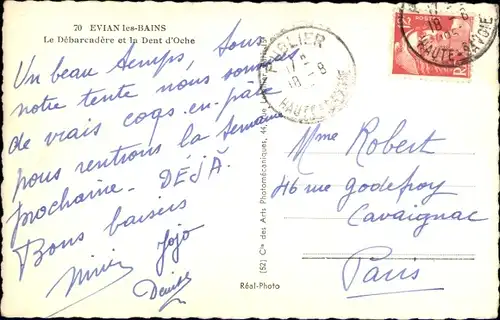 70 EVIAN les-BAINS
Le Débarcadère et la Dent d'Oche
Un beau temps, sous
notre tente nous sommes
de vrais coqs-en-pâte
nous rentrons la semaine
prochaine - DÉJÀ.
Bons baisers
Jojo
Denise
PUBLIER
18
HAUTE-SAVOIE
18
HAUTE-SAVOIE
Mme Robert
46 rue Godefroy
Cavaignac
Paris
(52) Cie des Arts Photomécaniques, 44
Réal-Photo